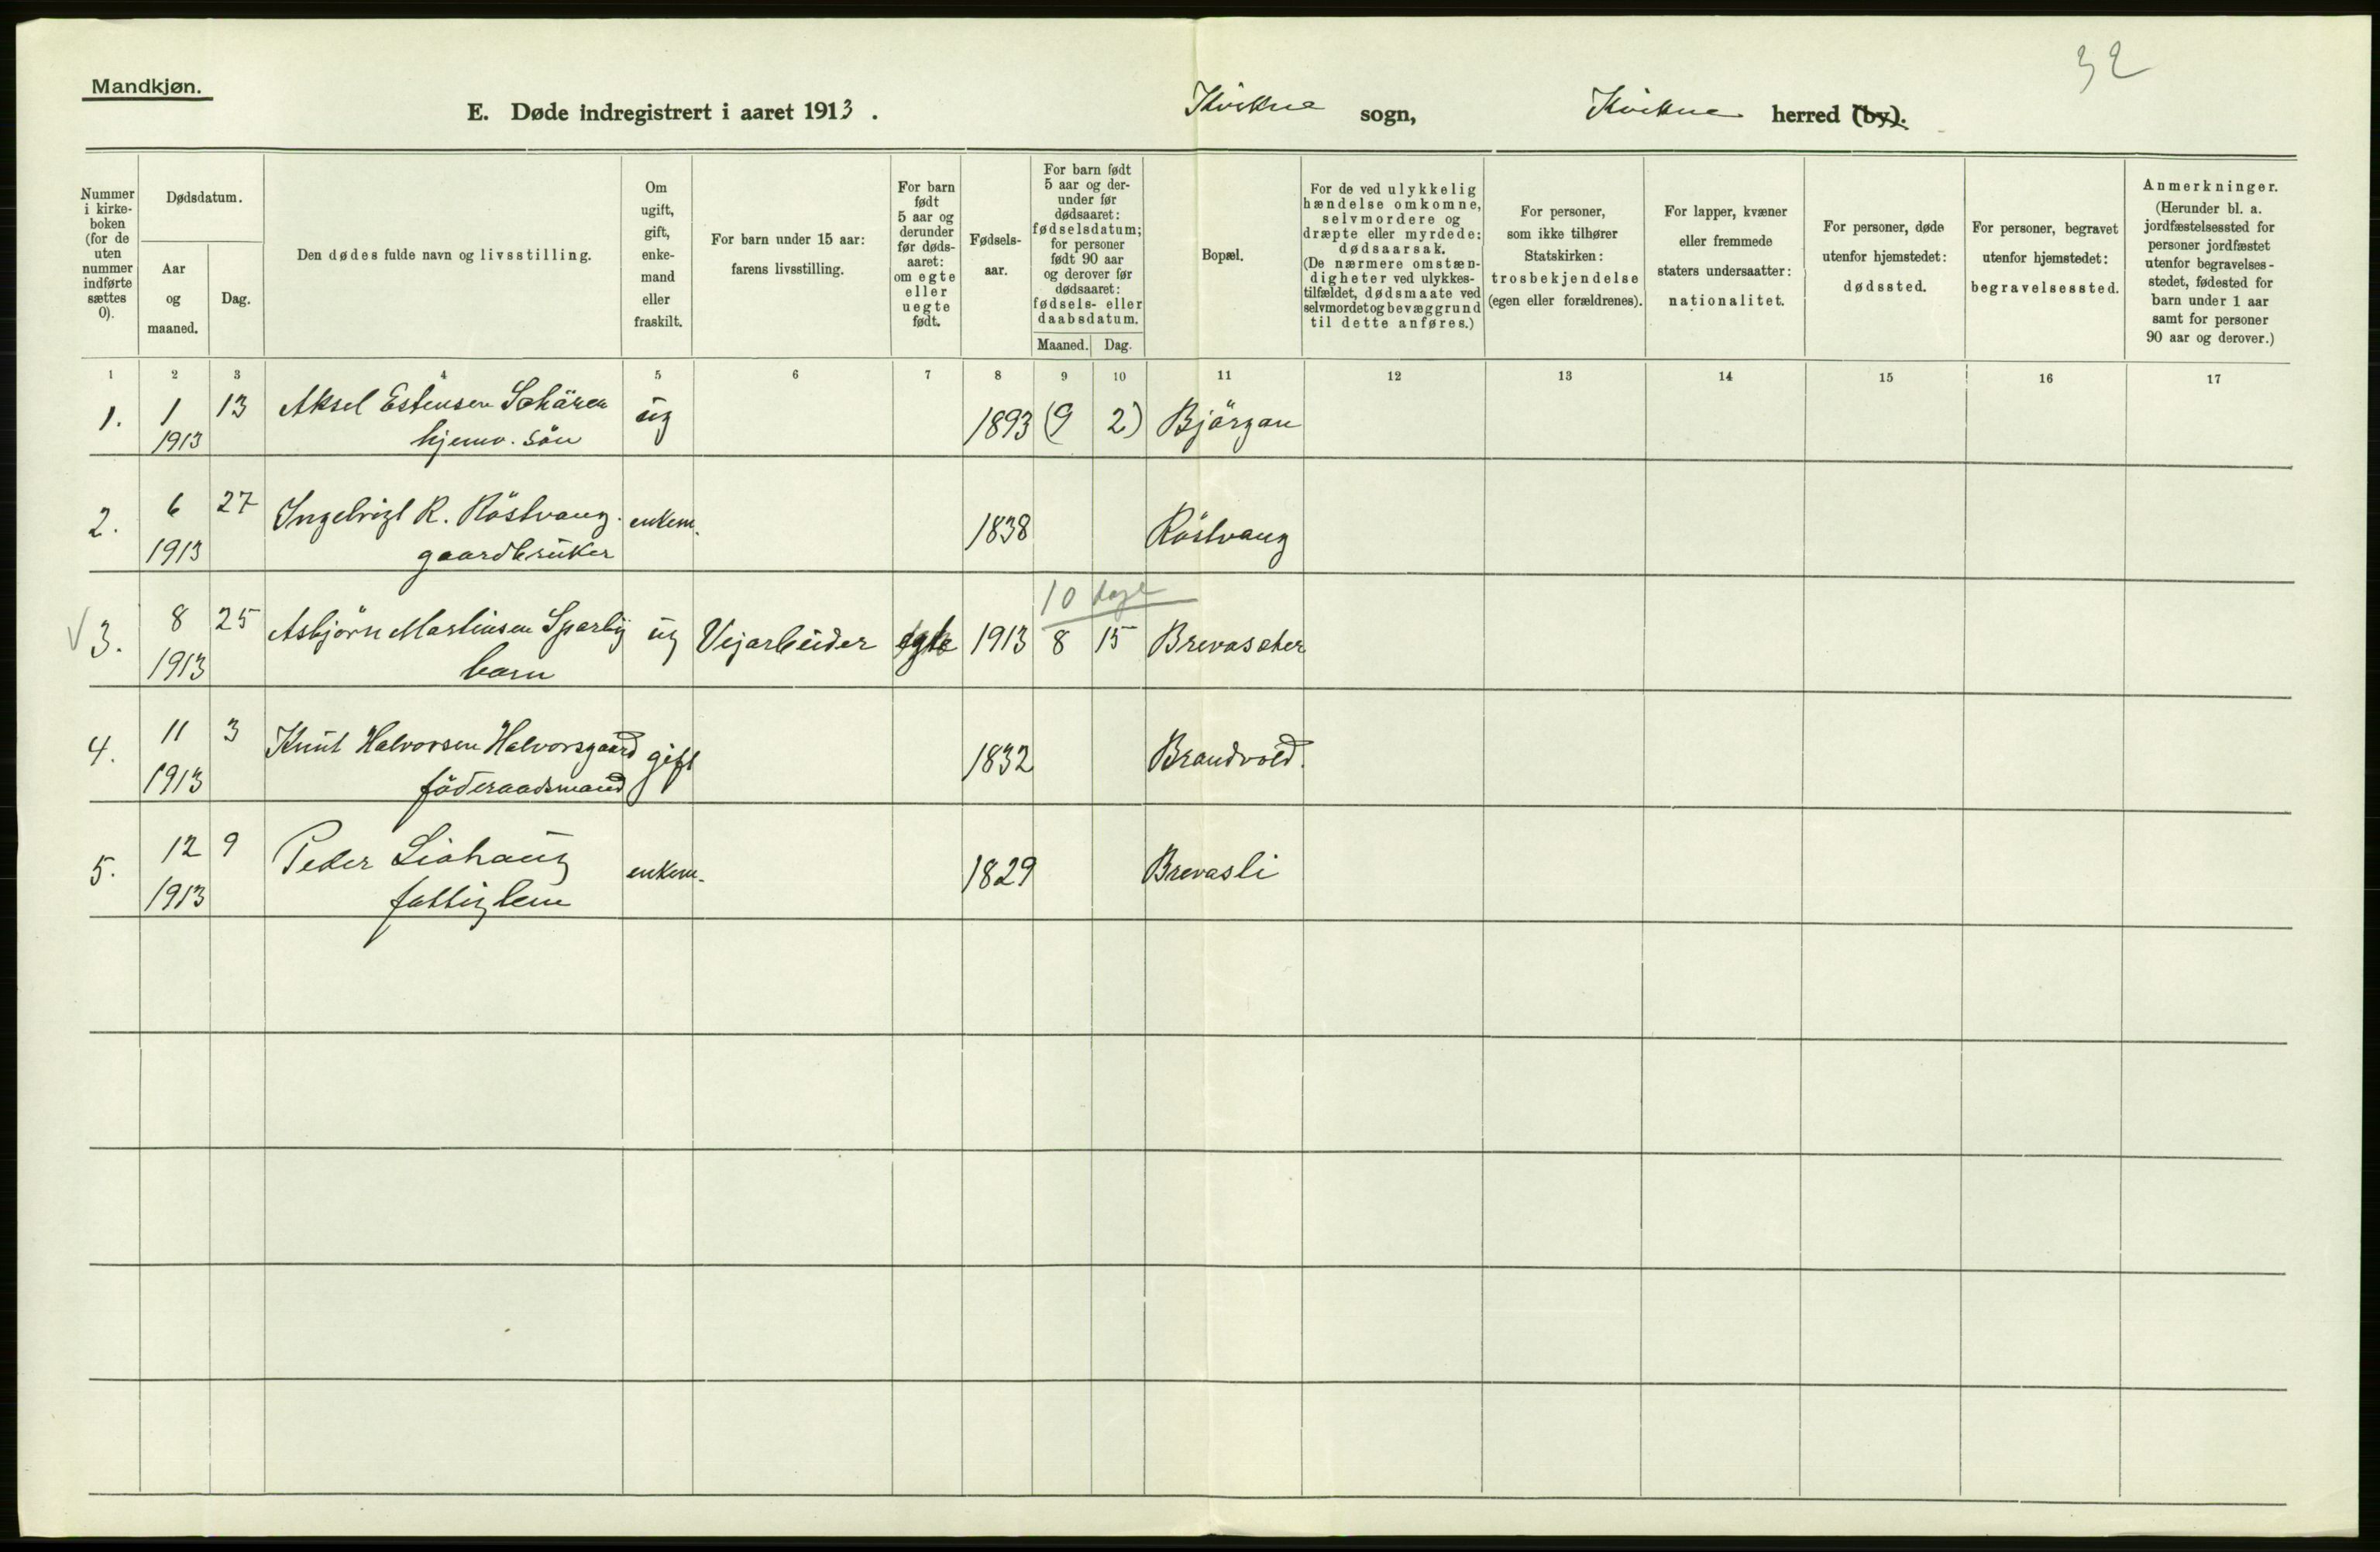 32
Mandkjøn.
E. Døde indregistrert i aaret 1913.
Kvikne sogn, Kvikne herred (by).
Nummer i kirke-boken (for de uten nummer indførte sættes 0).
Dødsdatum.
Aar og maaned.
Dag.
Den dødes fulde navn og livsstilling.
Om ugift, gift, enke-mand eller fraskilt.
For barn under 15 aar: farens livsstilling.
For barn født 5 aar og derunder før døds-aaret: om egte eller uegte født.
Fødsels-aar.
For barn født 5 aar og der-under før dødsaaret: fødselsdatum; for personer født 90 aar og derover før dødsaaret: fødsels- eller daabsdatum.
Maaned. Dag.
Bopæl.
For de ved ulykkelig hændelse omkomne, selvmordere og dræpte eller myrdede: dødsaarsak. (De nærmere omstæn-digheter ved ulykkes-tilfældet, dødsmaate ved selvmordet og bevæggrund til dette anføres.)
For personer, som ikke tilhører Statskirken: trosbekjendelse (egen eller forældrenes).
For lapper, kvæner eller fremmede staters undersaatter: nationalitet.
For personer, døde utenfor hjemstedet: dødssted.
For personer, begravet utenfor hjemstedet: begravelsessted.
Anmerkninger. (Herunder bl. a. jordfæstelsessted for personer jordfæstet utenfor begravelses-stedet, fødested for barn under 1 aar samt for personer 90 aar og derover.)
1 2 3 4 5 6 7 8 9 10 11 12 13 14 15 16 17
1. 1 13 Aksel Estensen ug 1893 (9 2) Björgan
1913 hjemv. sön
2. 6 27 Ingebrigt R. Röstvang. enkem. 1838 Röstvang
1913 gaardbruker
10 dage
3. 8 25 Asbjörn Martinsen Sparby ug Vejarbeider egte 1913 8 15 Brevasæter
1913 barn
4. 11 3 Knut Halvorsen Halvorsgaard gift 1832 Brandvold.
1913 föderaadsmand
5. 12 9 Peder Liahaug enkem. 1829 Brevasli
1913 fattiglem